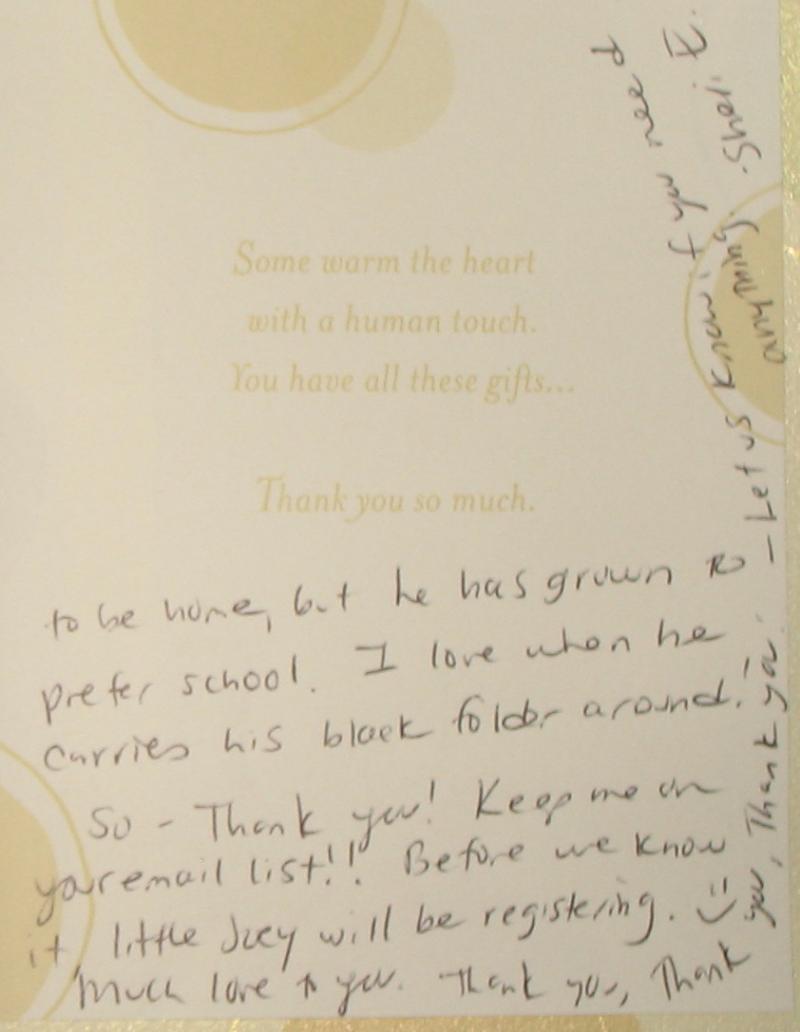 Some warm the heart
with a human touch.
You have all these gifts...
Thank you so much.
to be home, but he has grown to
prefer school. I love when he
carries his black folder around.
So - Thank you! Keep me on
your email list!! Before we know
it, little Joey will be registering. :)
Much love to you. Thank you, Thank
you, Thank you.
- Let us know if you need
anything. Sheri